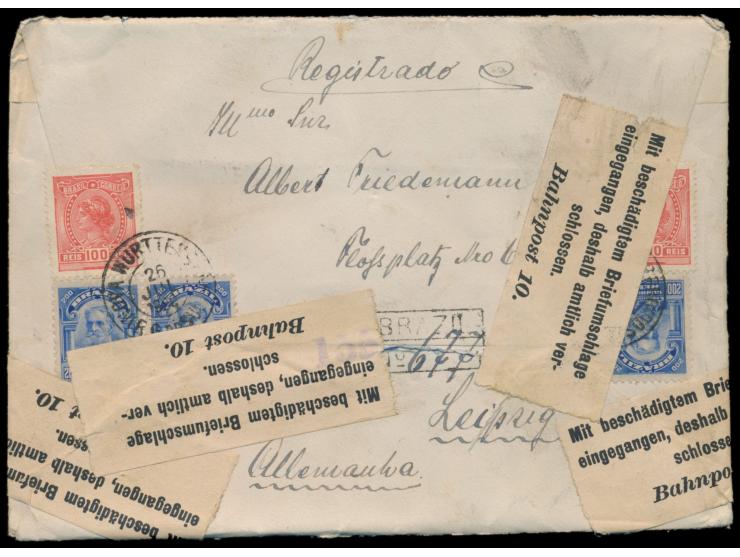 Registrado
Ill mo Snr.
Albert Friedemann
Rossplatz No 6
Leipzig
Allemanha
BRASIL CORREIO
100
REIS
200
BRAZIL
200
WÜRTTE
26
BRAZIL
177
No 677
Mit beschädigtem Briefumschlage
eingegangen, deshalb amtlich ver-
schlossen.
Bahnpost 10.
Mit beschädigtem Briefumschlage
eingegangen, deshalb amtlich ver-
schlossen.
Bahnpost 10.
Mit beschädigtem Brie
eingegangen, deshalb
schlosse
Bahnpo
t beschädigtem Briefum
eingegangen, deshalb amtlic
ssen.
t 10.
REIS
200
BRAZIL
200